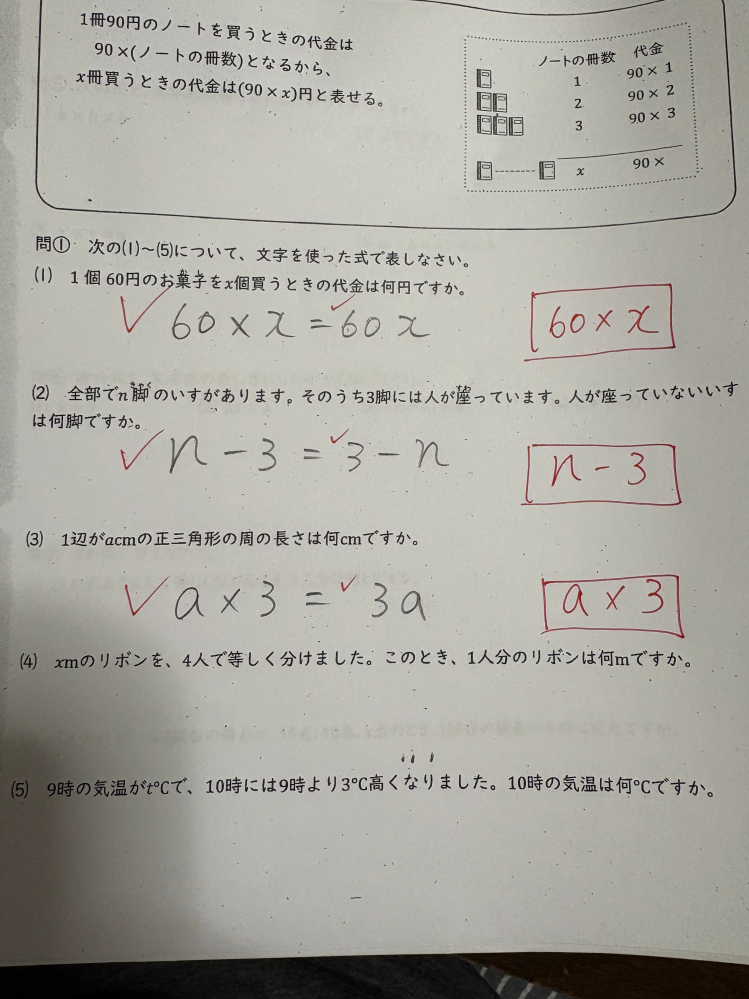 1冊90円のノートを買うときの代金は
90×(ノートの冊数)となるから、
x冊買うときの代金は(90×x)円と表せる。
ノートの冊数 代金
1 90×1
2 90×2
3 90×3
x 90×
問① 次の⑴~⑸について、文字を使った式で表しなさい。
⑴ 1個60円のお菓子をx個買うときの代金は何円ですか。
60×x=60x 60×x
⑵ 全部でn脚のいすがあります。そのうち3脚には人が座っています。人が座っていないいす
は何脚ですか。
n-3=3-n n-3
⑶ 1辺がacmの正三角形の周の長さは何cmですか。
a×3=3a a×3
⑷ xmのリボンを、4人で等しく分けました。このとき、1人分のリボンは何mですか。
⑸ 9時の気温がt℃で、10時には9時より3℃高くなりました。10時の気温は何℃ですか。